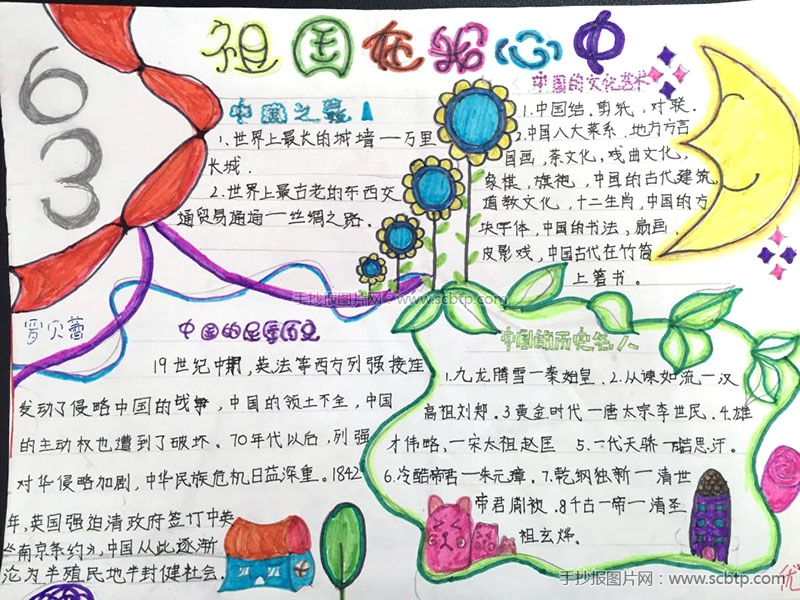 祖国在我心中
63
中国之最
1.世界上最长的城墙一万里
长城.
2.世界上最古老的东西交
通贸易通道一丝绸之路.
中国的文化艺术
1.中国结.剪纸,对联.
2.中国八大菜系.地方方言
国画,茶文化,戏曲文化,
象棋,旗袍,中国的古代建筑,
道教文化,十二生肖,中国的方
块字体,中国的书法,扇画,
皮影戏,中国古代在竹筒
上著书。
手抄报图片网:www.scbtp.com
罗贝蕾
中国的屈辱历史
19世纪中期,英法等西方列强接连
发动了侵略中国的战争,中国的领土不全,中国
的主动权也遭到了破坏.70年代以后,列强
对华侵略加剧,中华民族危机日益深重。1842
年,英国强迫清政府签订中英
《南京条约》,中国从此逐渐
沦为半殖民地半封健社会.
中国的历史名人
1.九龙腾雪一秦始皇.2.从谏如流一汉
高祖刘邦.3黄金时代一唐太宗李世民.4.雄
才伟略,一宋太祖赵匡 5.一代天骄一
6.冷酷帝君一朱元璋.7.乾纲独断一清世
帝君 8千古一帝一清圣
祖玄烨.
优
手抄报图片网:www.scbtp.com